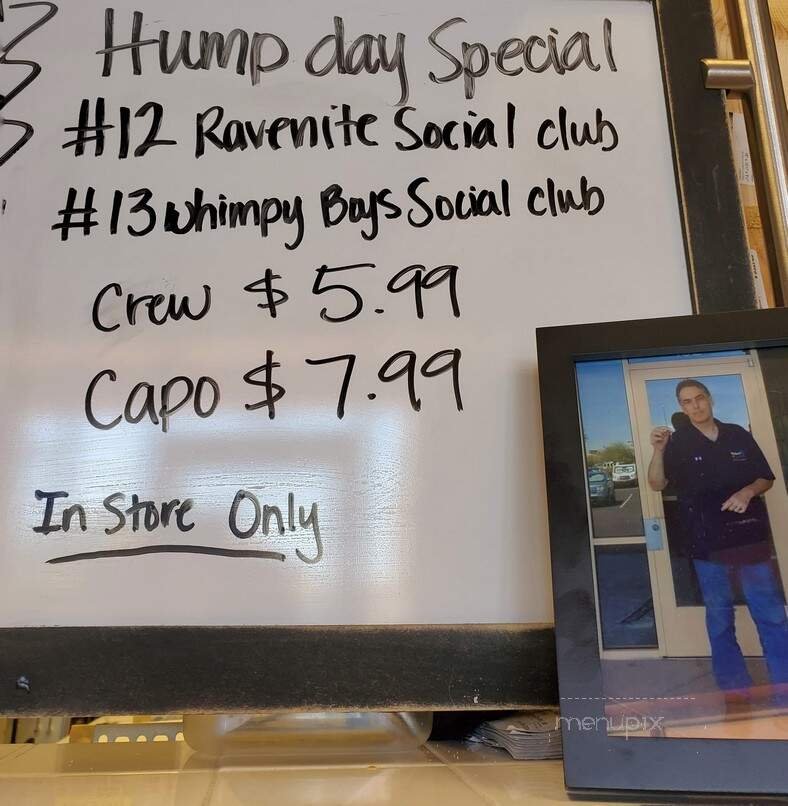 Hump day Special
#12 Ravenite Social club
#13 whimpy Boys Social club
Crew $ 5.99
Capo $ 7.99
In Store Only
menupix